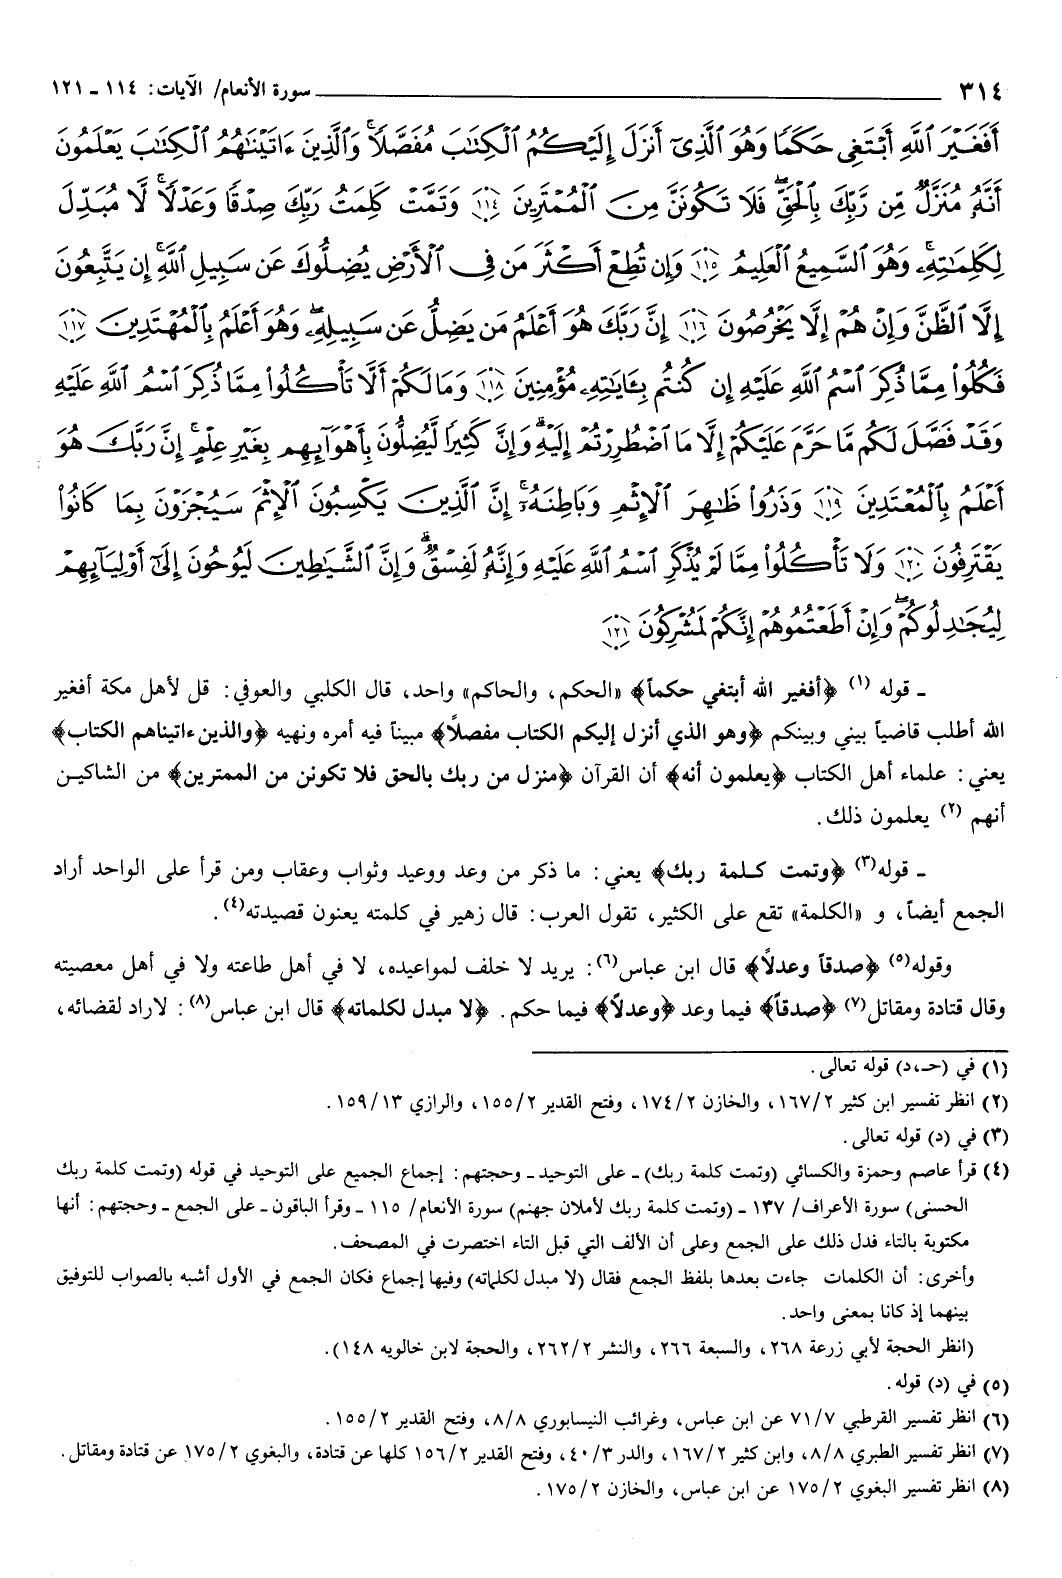 ٣١٤ ــــــ سورة الأنعام/ الآيات: ١١٤ ـ ١٢١
أَفَغَيْرَ ٱللَّهِ أَبْتَغِى حَكَمًا وَهُوَ ٱلَّذِىٓ أَنزَلَ إِلَيْكُمُ ٱلْكِتَٰبَ مُفَصَّلًا ۚ وَٱلَّذِينَ ءَاتَيْنَٰهُمُ ٱلْكِتَٰبَ يَعْلَمُونَ
أَنَّهُۥ مُنَزَّلٌ مِّن رَّبِّكَ بِٱلْحَقِّ ۖ فَلَا تَكُونَنَّ مِنَ ٱلْمُمْتَرِينَ ١١٤ وَتَمَّتْ كَلِمَتُ رَبِّكَ صِدْقًا وَعَدْلًا ۚ لَّا مُبَدِّلَ
لِكَلِمَٰتِهِۦ ۚ وَهُوَ ٱلسَّمِيعُ ٱلْعَلِيمُ ١١٥ وَإِن تُطِعْ أَكْثَرَ مَن فِى ٱلْأَرْضِ يُضِلُّوكَ عَن سَبِيلِ ٱللَّهِ ۚ إِن يَتَّبِعُونَ
إِلَّا ٱلظَّنَّ وَإِنْ هُمْ إِلَّا يَخْرُصُونَ ١١٦ إِنَّ رَبَّكَ هُوَ أَعْلَمُ مَن يَضِلُّ عَن سَبِيلِهِۦ ۖ وَهُوَ أَعْلَمُ بِٱلْمُهْتَدِينَ ١١٧
فَكُلُوا۟ مِمَّا ذُكِرَ ٱسْمُ ٱللَّهِ عَلَيْهِ إِن كُنتُم بِـَٔايَٰتِهِۦ مُؤْمِنِينَ ١١٨ وَمَا لَكُمْ أَلَّا تَأْكُلُوا۟ مِمَّا ذُكِرَ ٱسْمُ ٱللَّهِ عَلَيْهِ
وَقَدْ فَصَّلَ لَكُم مَّا حَرَّمَ عَلَيْكُمْ إِلَّا مَا ٱضْطُرِرْتُمْ إِلَيْهِ ۗ وَإِنَّ كَثِيرًا لَّيُضِلُّونَ بِأَهْوَآئِهِم بِغَيْرِ عِلْمٍ ۗ إِنَّ رَبَّكَ هُوَ
أَعْلَمُ بِٱلْمُعْتَدِينَ ١١٩ وَذَرُوا۟ ظَٰهِرَ ٱلْإِثْمِ وَبَاطِنَهُۥٓ ۚ إِنَّ ٱلَّذِينَ يَكْسِبُونَ ٱلْإِثْمَ سَيُجْزَوْنَ بِمَا كَانُوا۟
يَقْتَرِفُونَ ١٢٠ وَلَا تَأْكُلُوا۟ مِمَّا لَمْ يُذْكَرِ ٱسْمُ ٱللَّهِ عَلَيْهِ وَإِنَّهُۥ لَفِسْقٌ ۗ وَإِنَّ ٱلشَّيَٰطِينَ لَيُوحُونَ إِلَىٰٓ أَوْلِيَآئِهِمْ
لِيُجَٰدِلُوكُمْ ۖ وَإِنْ أَطَعْتُمُوهُمْ إِنَّكُمْ لَمُشْرِكُونَ ١٢١
ـ قوله (١) ﴿أفغير الله أبتغي حكماً﴾ «الحكم، والحاكم» واحد، قال الكلبي والعوفي: قل لأهل مكة أفغير
الله أطلب قاضياً بيني وبينكم ﴿وهو الذي أنزل إليكم الكتاب مفصلاً﴾ مبيناً فيه أمره ونهيه ﴿والذين ءاتيناهم الكتاب﴾
يعني: علماء أهل الكتاب ﴿يعلمون أنه﴾ أن القرآن ﴿منزل من ربك بالحق فلا تكونن من الممترين﴾ من الشاكين
أنهم (٢) يعلمون ذلك.
ـ قوله(٣) ﴿وتمت كلمة ربك﴾ يعني: ما ذكر من وعد ووعيد وثواب وعقاب ومن قرأ على الواحد أراد
الجمع أيضاً، و «الكلمة» تقع على الكثير، تقول العرب: قال زهير في كلمته يعنون قصيدته(٤).
وقوله(٥) ﴿صدقاً وعدلاً﴾ قال ابن عباس(٦): يريد لا خلف لمواعيده، لا في أهل طاعته ولا في أهل معصيته
وقال قتادة ومقاتل(٧) ﴿صدقاً﴾ فيما وعد ﴿وعدلاً﴾ فيما حكم. ﴿لا مبدل لكلماته﴾ قال ابن عباس(٨): لاراد لقضائه،
(١) في (حـ،د) قوله تعالى.
(٢) انظر تفسير ابن كثير ١٦٧/٢، والخازن ١٧٤/٢، وفتح القدير ١٥٥/٢، والرازي ١٥٩/١٣.
(٣) في (د) قوله تعالى.
(٤) قرأ عاصم وحمزة والكسائي (وتمت كلمة ربك) ـ على التوحيد ـ وحجتهم: إجماع الجميع على التوحيد في قوله (وتمت كلمة ربك
الحسنى) سورة الأعراف/ ١٣٧ ـ (وتمت كلمة ربك لأملان جهنم) سورة الأنعام/ ١١٥ ـ وقرأ الباقون ـ على الجمع ـ وحجتهم: أنها
مكتوبة بالتاء فدل ذلك على الجمع وعلى أن الألف التي قبل التاء اختصرت في المصحف.
وأخرى: أن الكلمات جاءت بعدها بلفظ الجمع فقال (لا مبدل لكلماته) وفيها إجماع فكان الجمع في الأول أشبه بالصواب للتوفيق
بينهما إذ كانا بمعنى واحد.
(انظر الحجة لأبي زرعة ٢٦٨، والسبعة ٢٦٦، والنشر ٢٦٢/٢، والحجة لابن خالويه ١٤٨).
(٥) في (د) قوله.
(٦) انظر تفسير القرطبي ٧١/٧ عن ابن عباس، وغرائب النيسابوري ٨/٨، وفتح القدير ١٥٥/٢.
(٧) انظر تفسير الطبري ٨/٨، وابن كثير ١٦٧/٢، والدر ٤٠/٣، وفتح القدير ١٥٦/٢ كلها عن قتادة، والبغوي ١٧٥/٢ عن قتادة ومقاتل.
(٨) انظر تفسير البغوي ١٧٥/٢ عن ابن عباس، والخازن ١٧٥/٢.